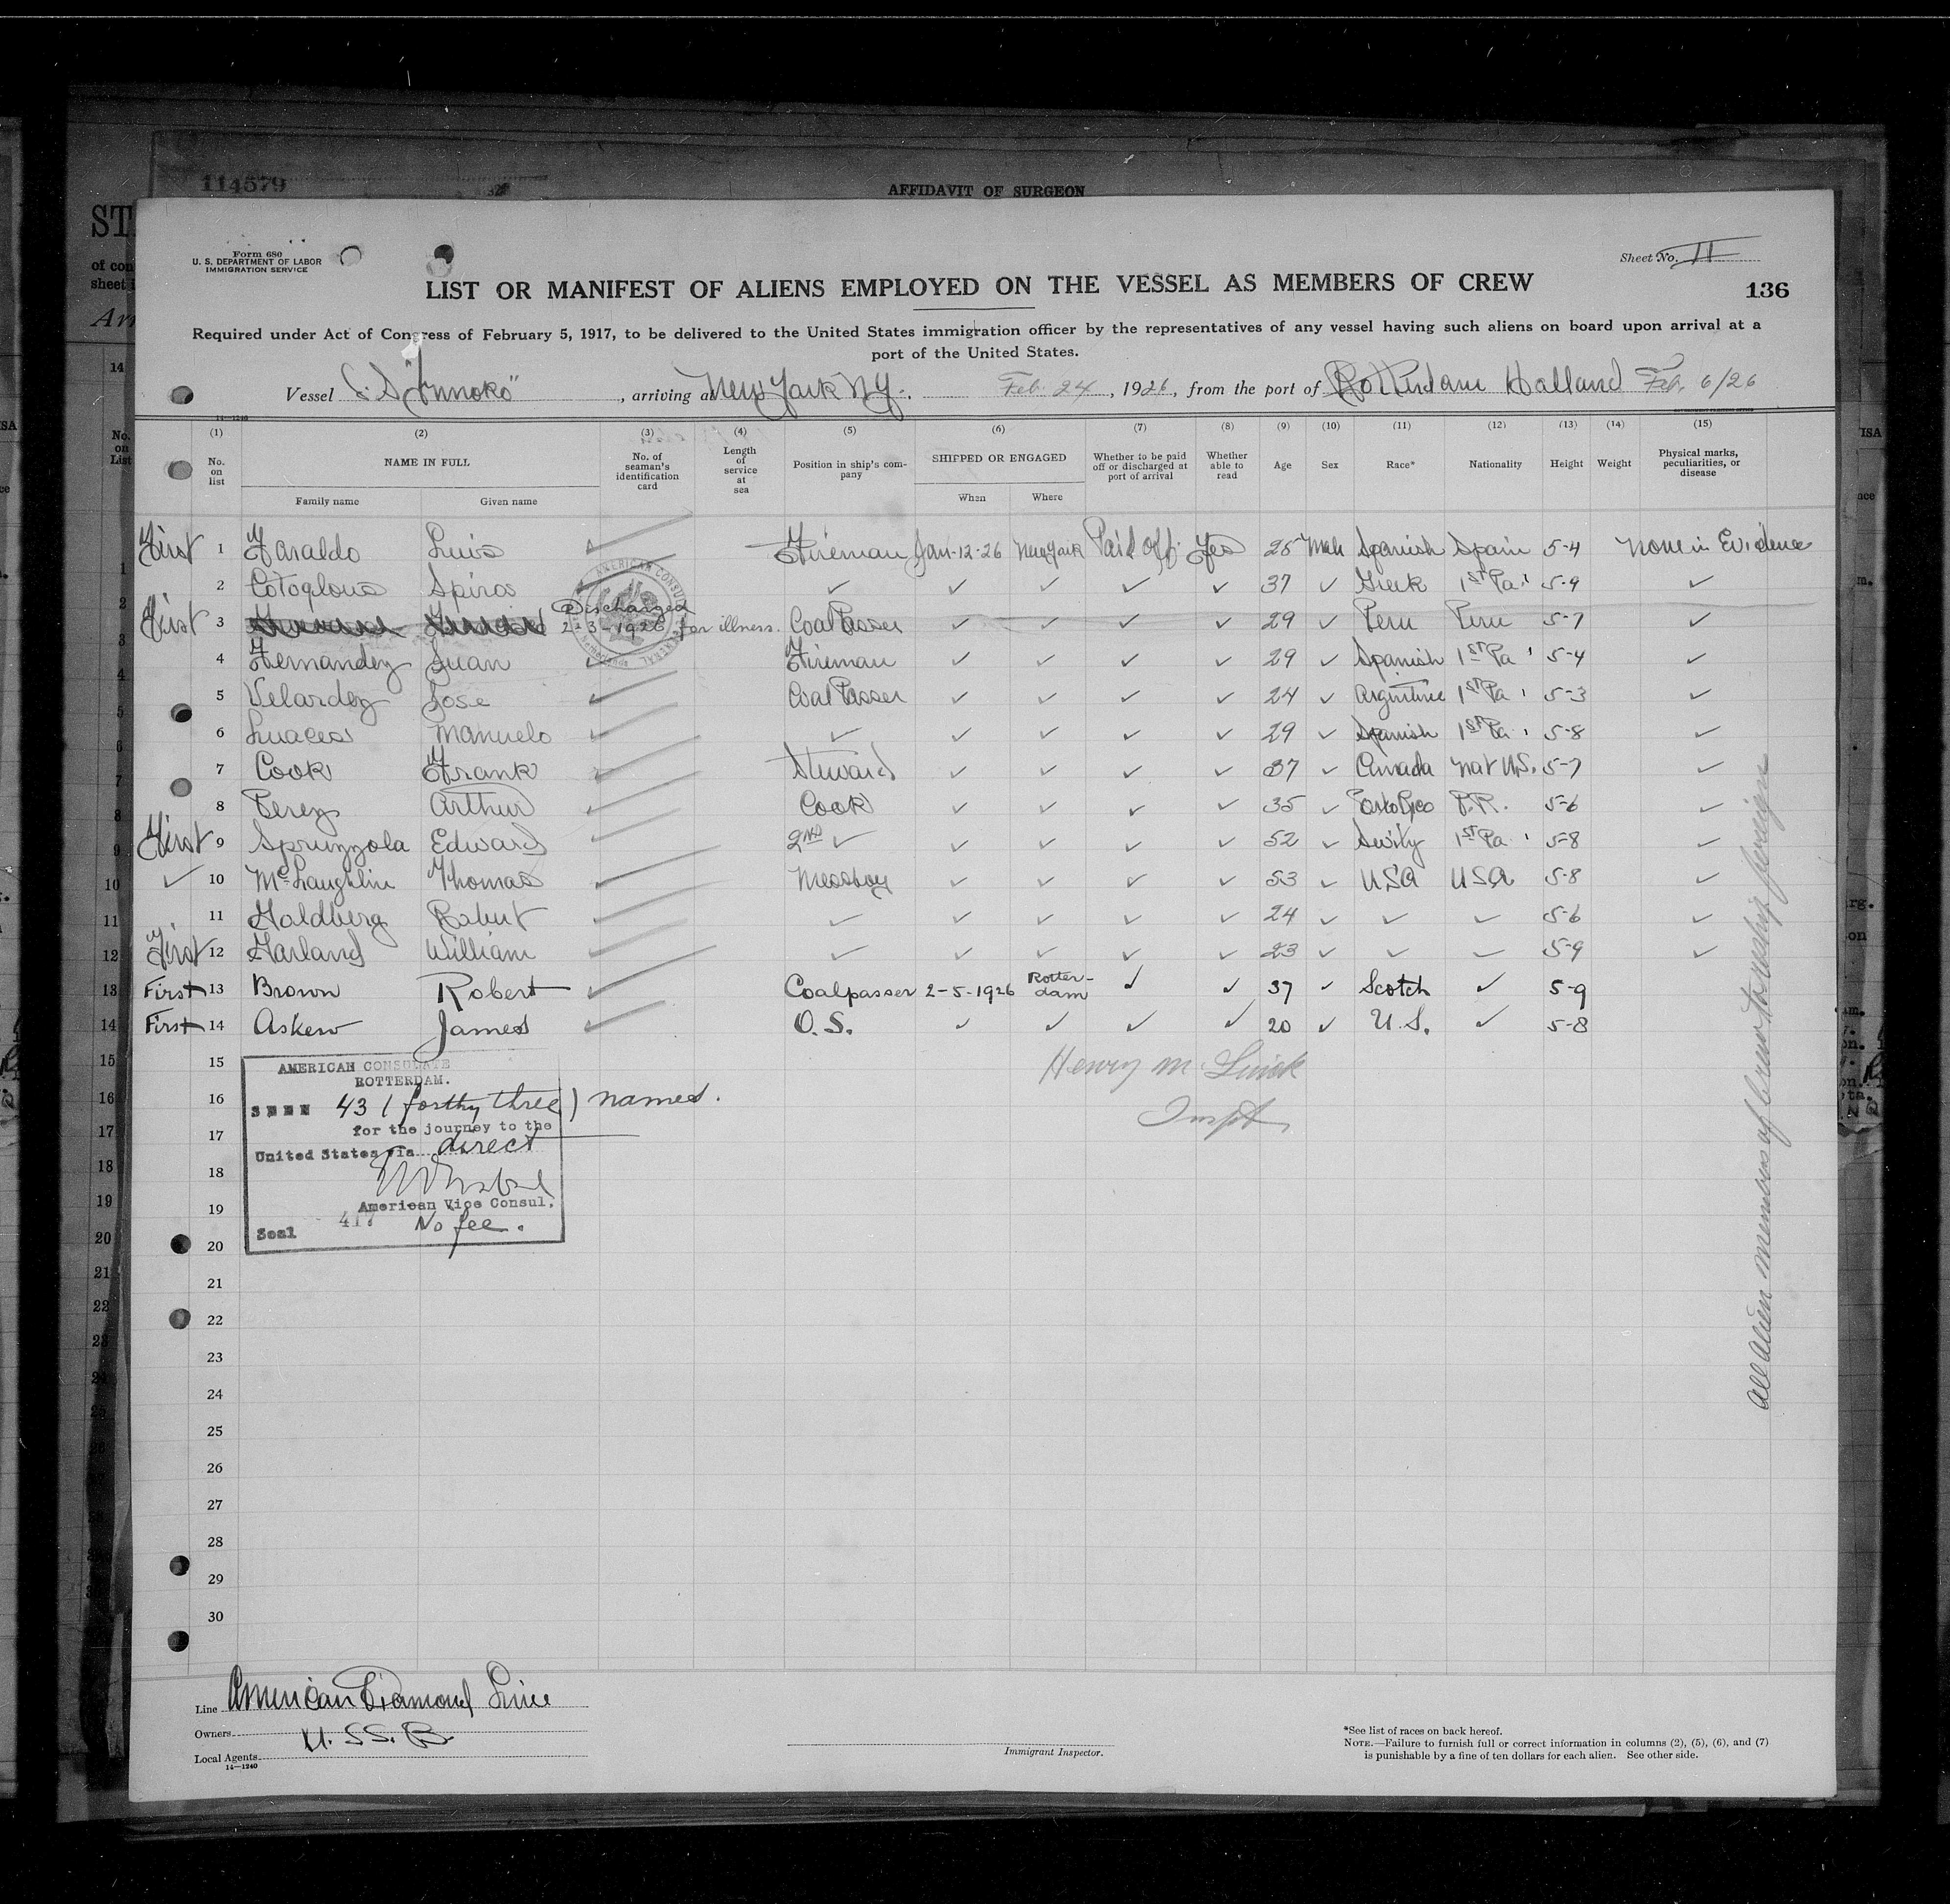 114579
AFFIDAVIT OF SURGEON
Form 680
U. S. DEPARTMENT OF LABOR
IMMIGRATION SERVICE
Sheet No. II
LIST OR MANIFEST OF ALIENS EMPLOYED ON THE VESSEL AS MEMBERS OF CREW
136
Required under Act of Congress of February 5, 1917, to be delivered to the United States immigration officer by the representatives of any vessel having such aliens on board upon arrival at a
port of the United States.
Vessel S.S. "Innoko", arriving at New York N.Y., Feb. 24, 1926, from the port of Rotterdam Holland Feb. 6/26
(1) (2) (3) (4) (5) (6) (7) (8) (9) (10) (11) (12) (13) (14) (15)
No. on list
NAME IN FULL
Family name Given name
No. of seaman's identification card
Length of service at sea
Position in ship's company
SHIPPED OR ENGAGED
When Where
Whether to be paid off or discharged at port of arrival
Whether able to read
Age
Sex
Race*
Nationality
Height
Weight
Physical marks, peculiarities, or disease
First 1 Faraldo Luis ✓ Fireman Jan-12-26 New York Paid Off Yes 25 Male Spanish Spain 5-4 None in Evidence
2 Cotoglous Spiros ✓ ✓ ✓ ✓ ✓ ✓ 37 ✓ Greek 1st Pa. 5-9 ✓
First 3 Discharged 2-3-1926 for illness. Coal Passer ✓ ✓ ✓ ✓ 29 ✓ Peru Peru 5-7 ✓
4 Fernandez Juan ✓ Fireman ✓ ✓ ✓ ✓ 29 ✓ Spanish 1st Pa. 5-4 ✓
5 Velardez Jose ✓ Coal Passer ✓ ✓ ✓ ✓ 24 ✓ Argintine 1st Pa. 5-3 ✓
6 Luaces Manuelo ✓ ✓ ✓ ✓ ✓ ✓ 29 ✓ Spanish 1st Pa. 5-8 ✓
7 Cook Frank ✓ Steward ✓ ✓ ✓ ✓ 37 ✓ Canada Nat U.S. 5-7 ✓
8 Perez Arthur ✓ Cook ✓ ✓ ✓ ✓ 35 ✓ Porto Rico P.R. 5-6 ✓
First 9 Spruzzola Edward ✓ 2nd ✓ ✓ ✓ ✓ ✓ 52 ✓ 1st Pa. 5-8 ✓
✓ 10 McLaughlin Thomas ✓ Messboy ✓ ✓ ✓ ✓ 53 ✓ USA USA 5-8 ✓
11 Goldberg Robert ✓ ✓ ✓ ✓ ✓ ✓ 24 ✓ ✓ ✓ 5-6 ✓
First 12 Garland William ✓ ✓ ✓ ✓ ✓ ✓ 23 ✓ ✓ ✓ 5-9 ✓
First 13 Brown Robert ✓ Coalpasser 2-5-1926 Rotterdam ✓ ✓ 37 ✓ Scotch ✓ 5-9
First 14 Askew James ✓ O.S. ✓ ✓ ✓ ✓ 20 ✓ U.S. ✓ 5-8
15
16
17
18
19
20
21
22
23
24
25
26
27
28
29
30
AMERICAN CONSULATE
ROTTERDAM.
SEEN 43 (forthy three) names.
for the journey to the
United States via direct
American Vice Consul.
Seal 417 No fee.
Henry M.
Inspt
All alien members of crew
Line American Diamond Line
Owners U.S.S.B.
Local Agents
14—1240
Immigrant Inspector.
*See list of races on back hereof.
NOTE.—Failure to furnish full or correct information in columns (2), (5), (6), and (7)
is punishable by a fine of ten dollars for each alien. See other side.